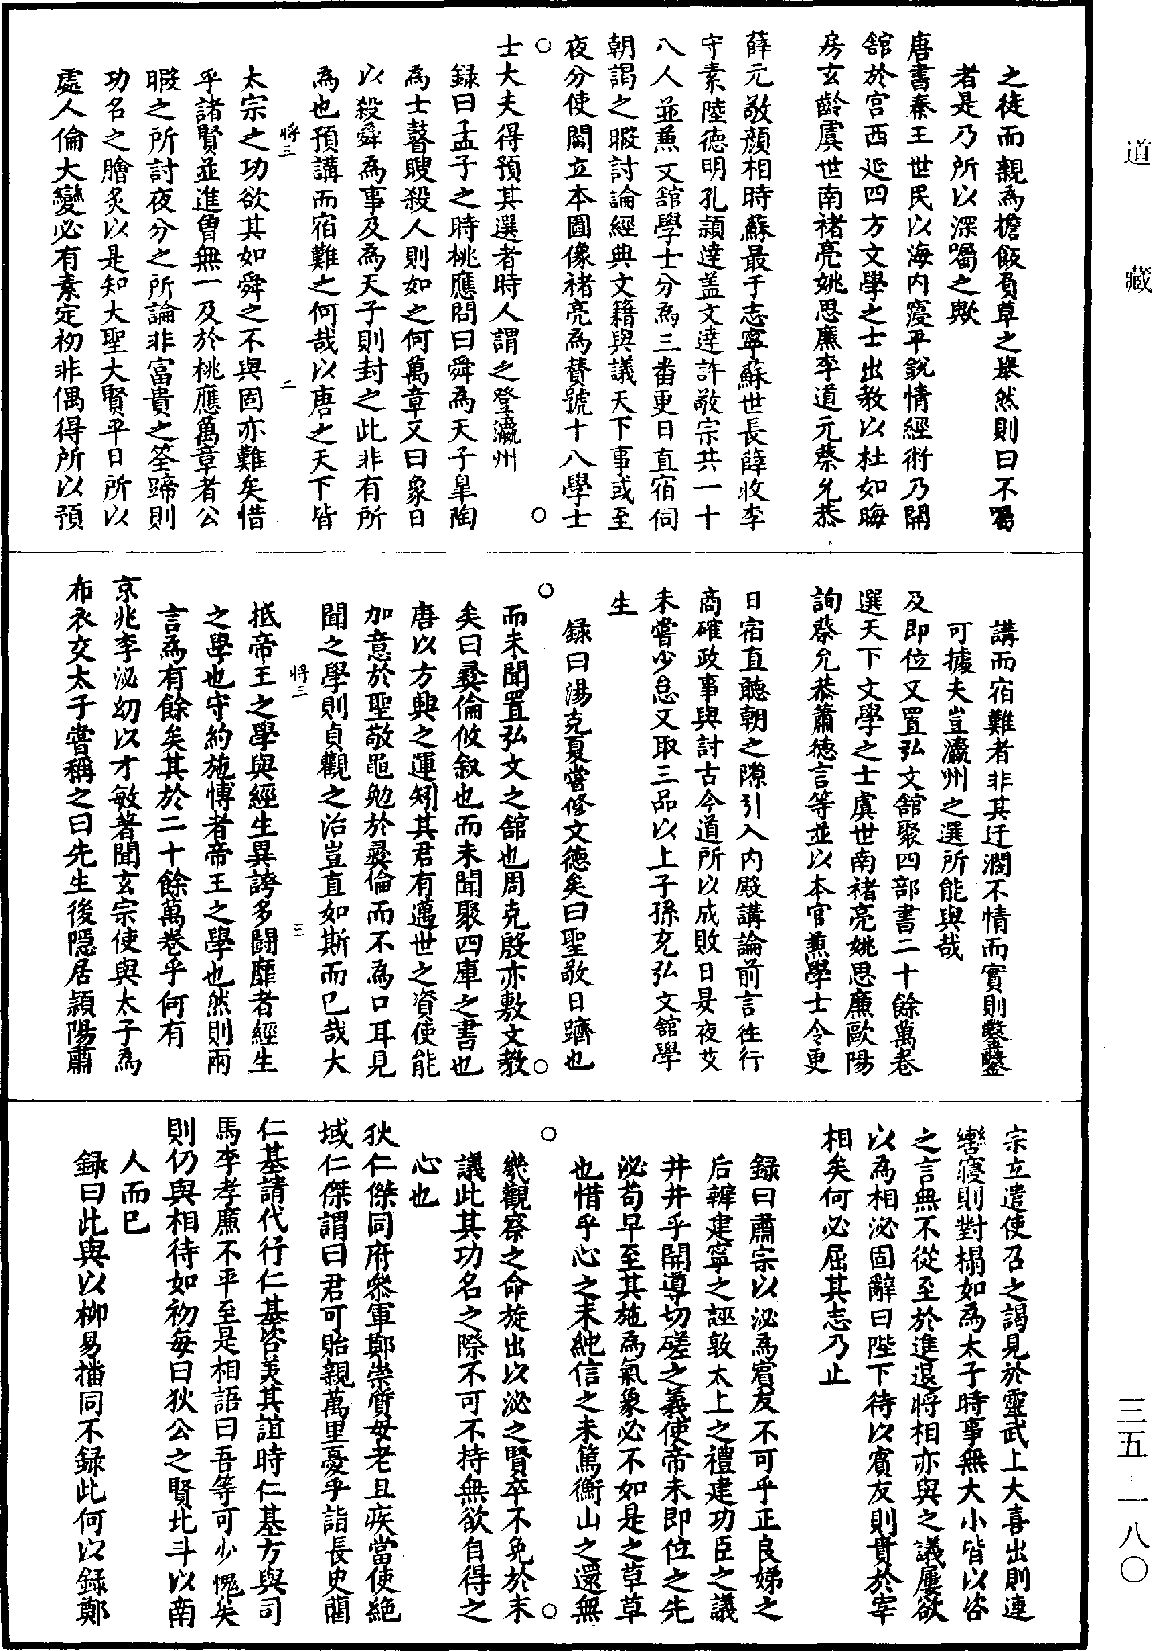 道藏
之徒而親為擔飯負草之舉然則曰不啻
者是乃所以深嘱之歟
唐書秦王世民以海内寖平銳情經術乃開
舘於宫西延四方文學之士出教以杜如晦
房玄齡虞世南褚亮姚思廉李道元蔡允恭
薛元敬顔相時蘇最于志寧蘇世長薛收李
守素陸德明孔頴達盖文達許敬宗共一十
八人並兼文舘學士分為三畨更日直宿伺
朝謁之暇討論經典文籍與議天下事或至
夜分使閻立本圖像褚亮為賛號十八學士
士大夫得預其選者時人謂之登瀛州
録曰孟子之時桃應問曰舜為天子皐陶
為士瞽瞍殺人則如之何萬章又曰象日
以殺舜為事及為天子則封之此非有所
為也預講而宿難之何哉以唐之天下皆
將三 二
太宗之功欲其如舜之不與固亦難矣惜
乎諸賢並進曾無一及於桃應萬章者公
暇之所討夜分之所論非富貴之筌蹄則
功名之膾炙以是知大聖大賢平日所以
處人倫大變必有素定初非偶得所以預
講而宿難者非其迂濶不情而實則鑿鑿
可據夫豈瀛州之選所能與哉
及即位又置弘文舘聚四部書二十餘萬卷
選天下文學之士虞世南褚亮姚思廉歐陽
詢蔡允恭蕭德言等並以本官兼學士令更
日宿直聽朝之隙引入内殿講論前言徃行
商確政事與討古今道所以成敗日晏夜艾
未嘗少怠又取三品以上子孫充弘文舘學
生
録曰湯克夏嘗修文德矣曰聖敬日躋也
而未聞置弘文之舘也周克殷亦敷文教
矣曰彛倫攸叙也而未聞聚四庫之書也
唐以方興之運矧其君有邁世之資使能
加意於聖敬黽勉於彛倫而不為口耳見
聞之學則貞觀之治豈直如斯而已哉大
將三 三
抵帝王之學與經生異誇多闘靡者經生
之學也守約施博者帝王之學也然則兩
言為有餘矣其於二十餘萬卷乎何有
京兆李泌幼以才敏著聞玄宗使與太子為
布衣交太子嘗稱之曰先生後隱居頴陽肅
宗立遣使召之謁見於靈武上大喜出則連
轡寢則對榻如為太子時事無大小皆以咨
之言無不從至於進退將相亦與之議屢欲
以為相泌固辭曰陛下待以賓友則貴於宰
相矣何必屈其志乃止
録曰肅宗以泌為賓友不可乎正良娣之
后辨建寧之誣敦太上之禮建功臣之議
井井乎開導切磋之義使帝未即位之先
泌苟早至其施為氣象必不如是之草草
也惜乎心之未純信之未篤衡山之還無
幾觀察之命旋出以泌之賢卒不免於末
議此其功名之際不可不持無欲自得之
心也
狄仁傑同府叅軍鄭崇質母老且疾當使絶
域仁傑謂曰君可貽親萬里憂乎詣長史藺
仁基請代行仁基咨美其誼時仁基方與司
馬李孝廉不平至是相語曰吾等可少愧矣
則仍與相待如初每曰狄公之賢北斗以南
一人而已
録曰此與以柳易播同不録此何以録鄭
三五 一八〇